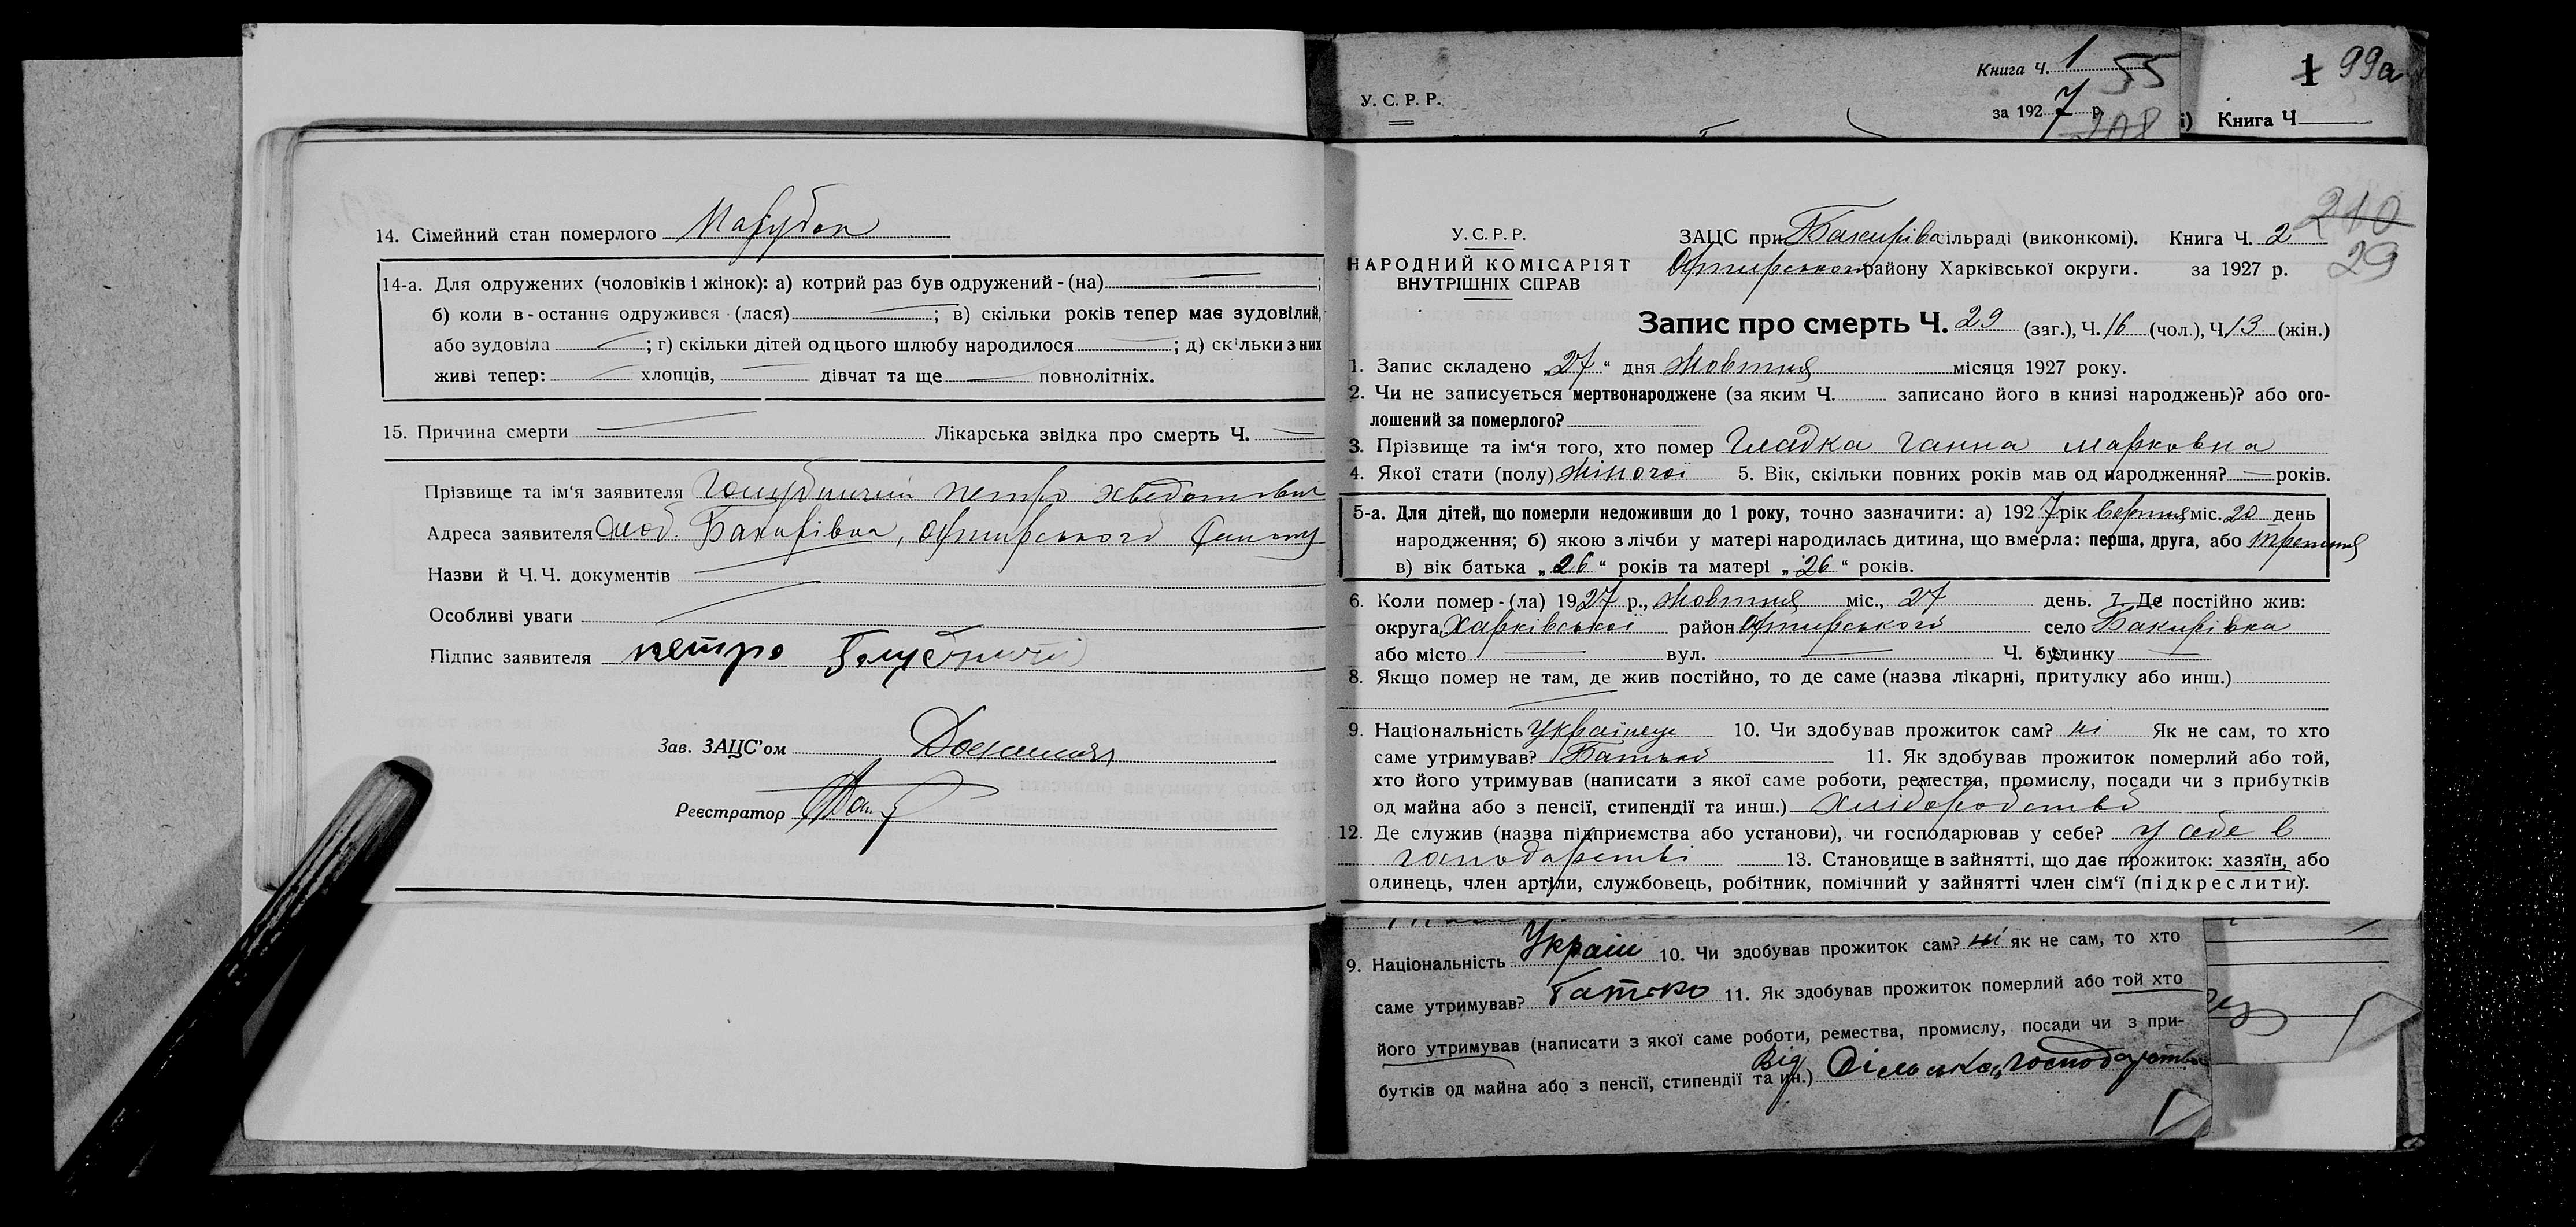 14. Сімейний стан померлого Парубок
14-а. Для одружених (чоловіків і жінок): а) котрий раз був одружений-(на) ;
б) коли в-останнє одружився (лася) ; в) скільки років тепер має зудовілий,
або зудовіла ; г) скільки дітей од цього шлюбу народилося ; д) скільки з них
живі тепер: хлопців, дівчат та ще повнолітніх.
15. Причина смерти Лікарська звідка про смерть Ч.
Прізвище та ім'я заявителя Голубничий Петро
Адреса заявителя Слоб. Бакирівка, Охтирського
Назви й Ч.Ч. документів
Особливі уваги
Підпис заявителя Петро Голубничій
Зав. ЗАЦС'ом
Реєстратор
У. С. Р. Р.
Книга Ч. 1 55
за 1927 р.
208
1 99а
Книга Ч
210
29
У. С. Р. Р.
НАРОДНИЙ КОМІСАРІЯТ
ВНУТРІШНІХ СПРАВ
ЗАЦС при Бакирівс сільраді (виконкомі). Книга Ч. 2
Охтирського району Харківської округи. за 1927 р.
Запис про смерть Ч. 29 (заг.), Ч. 16 (чол.), Ч. 13 (жін.)
1. Запис складено „27“ дня Жовтня місяця 1927 року.
2. Чи не записується мертвонароджене (за яким Ч. записано його в книзі народжень)? або ого-
лошений за померлого?
3. Прізвище та ім'я того, хто помер Гладка Ганна Марковна
4. Якої стати (полу) жіночої 5. Вік, скільки повних років мав од народження? — років.
5-а. Для дітей, що померли недоживши до 1 року, точно зазначити: а) 1927 рік Серпня міс. 20 день
народження; б) якою з лічби у матері народилась дитина, що вмерла: перша, друга, або третя
в) вік батька „26“ років та матері „26“ років.
6. Коли помер-(ла) 1927 р., Жовтня міс., 27 день. 7. Де постійно жив:
округа Харківської район Охтирського село Бакирівка
або місто вул. Ч. будинку
8. Якщо помер не там, де жив постійно, то де саме (назва лікарні, притулку або инш.)
9. Національність Українець 10. Чи здобував прожиток сам? ні Як не сам, то хто
саме утримував? Батько 11. Як здобував прожиток померлий або той,
хто його утримував (написати з якої саме роботи, ремества, промислу, посади чи з прибутків
од майна або з пенсії, стипендії та инш.) хліборобство
12. Де служив (назва підприємства або установи), чи господарював у себе? у себе в
господарстві 13. Становище в зайнятті, що дає прожиток: хазяїн, або
одинець, член артіли, службовець, робітник, помічний у зайнятті член сім'ї (підкреслити).
9. Національність Украін 10. Чи здобував прожиток сам? ні як не сам, то хто
саме утримував? Батько 11. Як здобував прожиток померлий або той хто
його утримував (написати з якої саме роботи, ремества, промислу, посади чи з при-
бутків од майна або з пенсії, стипендії та ин.) Від сільська господарства